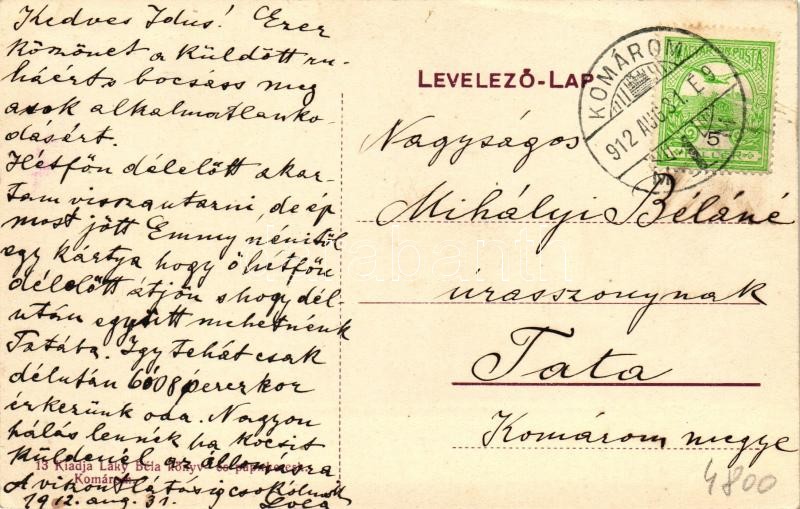 Kedves Idus! Ezer
köszönet a küldött ru-
háért s bocsáss meg
azok alkalmatlanko-
dásért.
Hétfőn délelőtt akar-
tam visszautazni, de ép
most jött Emmy nénitől
egy kártya hogy ő hétfőn
délelőtt átjön s hogy dél-
után együtt mehetnénk
Tatába. Igy tehát csak
délután 6 ó 8 perczkor
érkezünk oda. Nagyon
hálás lennék ha kocsit
küldenél az állomásra
A viszontlátásig csókol
1912. aug. 31.
13 Kiadja Laky Béla könyv
Komárom
LEVELEZŐ-LAP
KOMÁROM
912 AUG. 31. E 9
POSTA
5
Nagyságos
Mihályi Béláné
úrasszonynak
Tata
Komárom megye
4800